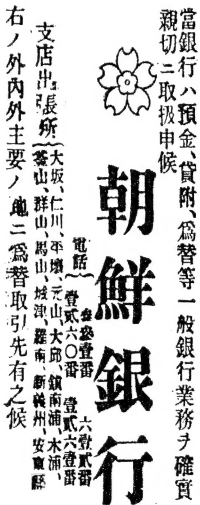 當銀行ハ預金、貸附、爲替等一般銀行業務ヲ確實
親切ニ取扱申候
朝鮮銀行
電話
六壹貳番
壹貳六〇番 壹貳六壹番
支店出張所
大坂、仁川、平壤、元山、大邱、鎭南浦、木浦、
釜山、群山、馬山、城津、羅南、新義州、安東縣
右ノ外內外主要ノ地ニ爲替取引先有之候